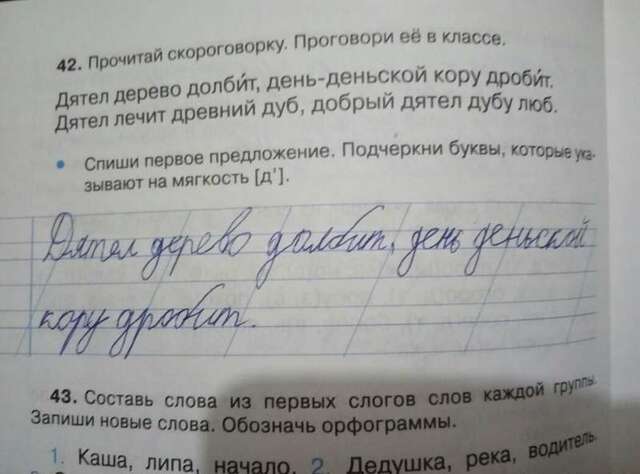 42. Прочитай скороговорку. Проговори её в классе.
Дятел дерево долби́т, день-деньской кору дроби́т.
Дятел лечит древний дуб, добрый дятел дубу люб.
• Спиши первое предложение. Подчеркни буквы, которые ука-
зывают на мягкость [д'].
Дятел дерево долбит, день деньской
кору дробит.
43. Составь слова из первых слогов слов каждой группы.
Запиши новые слова. Обозначь орфограммы.
1. Каша, липа, начало. 2. Дедушка, река, водитель.